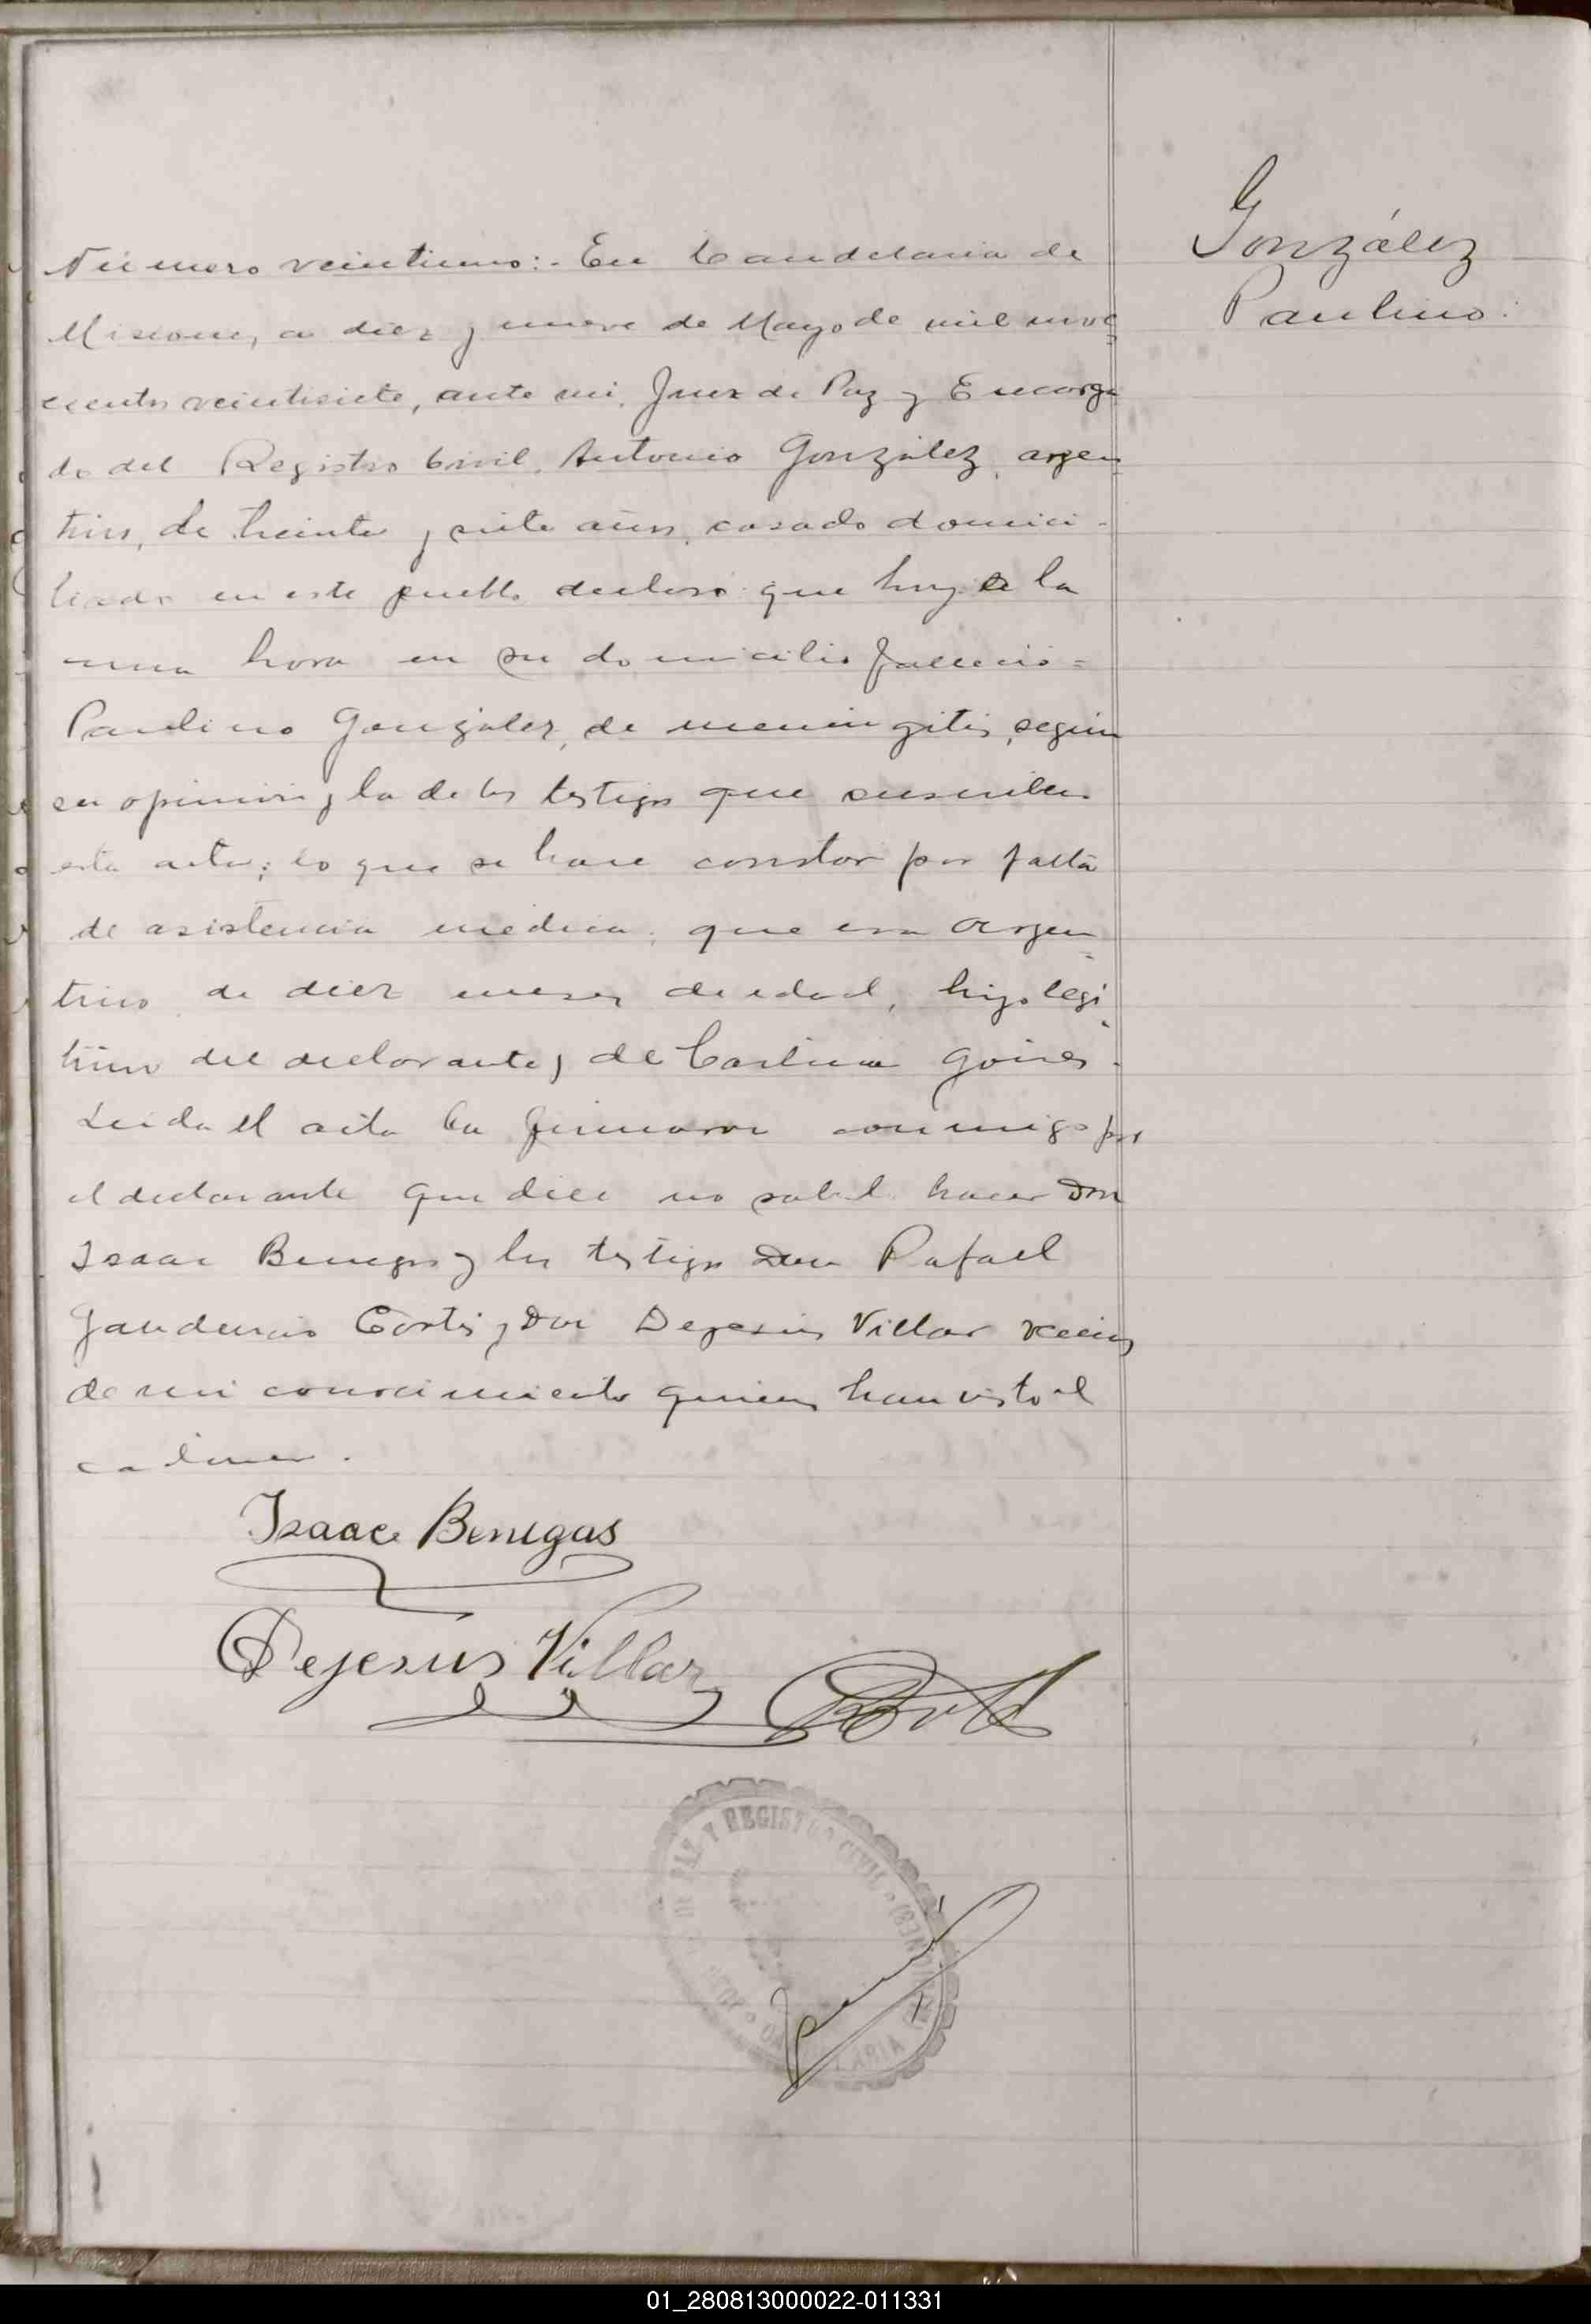 González
Paulino.
Número veintiuno:- En Candelaria de
Misiones, a diez y nueve de Mayo de mil nove
cientos veintisiete, ante mi, Juez de Paz y Encarga
do del Registro Civil, Antonio González, argen
tino, de treinta y siete años, casado domici-
liado en este pueblo declaró que hoy a la
una hora en su domicilio falleció=
Paulino González, de meningitis, según
su opinión y la de los testigos que suscriben
esta acta; lo que se hace constar por falta
de asistencia médica; que era argen
tino de diez meses de edad, hijo legí
timo del declarante y de
Leida el acta la firmaron conmigo por
el declarante que dice no saberlo hacer Don
Isaac Benegas y los testigos Don Rafael
Gaudencio Cortés y Don Dejesús Villar vecinos
de mi conocimiento quienes han visto el
cadáver.
Isaac Benegas
Dejesus Villar
DE PAZ Y REGISTRO CIVIL (MISIONES)
01_280813000022-011331